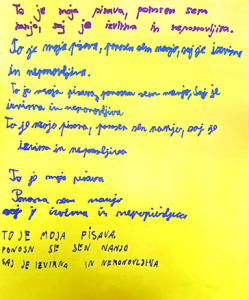 To je moja pisava, ponosen sem
nanjo, saj je izvirna in neponovljiva.
To je moja pisava, ponosen sem nanjo, saj je izvirna
in neponovljiva.
To je moja pisava, ponosen sem nanjo, saj je
izvirna in neponovljiva
To je moja pisava, ponosen sem nanjo, saj je
izvirna in neponovljiva
To je moja pisava
Ponosen sem nanjo
saj je izvirna in
TO JE MOJA PISAVA
PONOSN SE SEM NANJO
SAJ JE IZVIRNA IN NEPONOVLJIVA